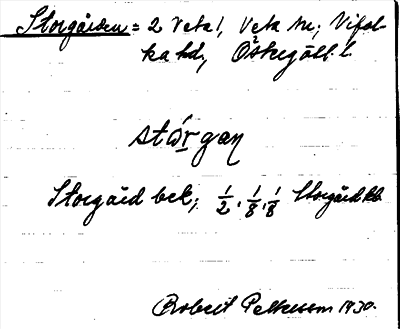 Storgården = 2 Veta, Veta sn; Vifol-
ka hd, Östergötl. l.
stórgan
Storgård bek, 1/2, 1/8, 1/8 Storgård kb
Robert Pettersson 1930.